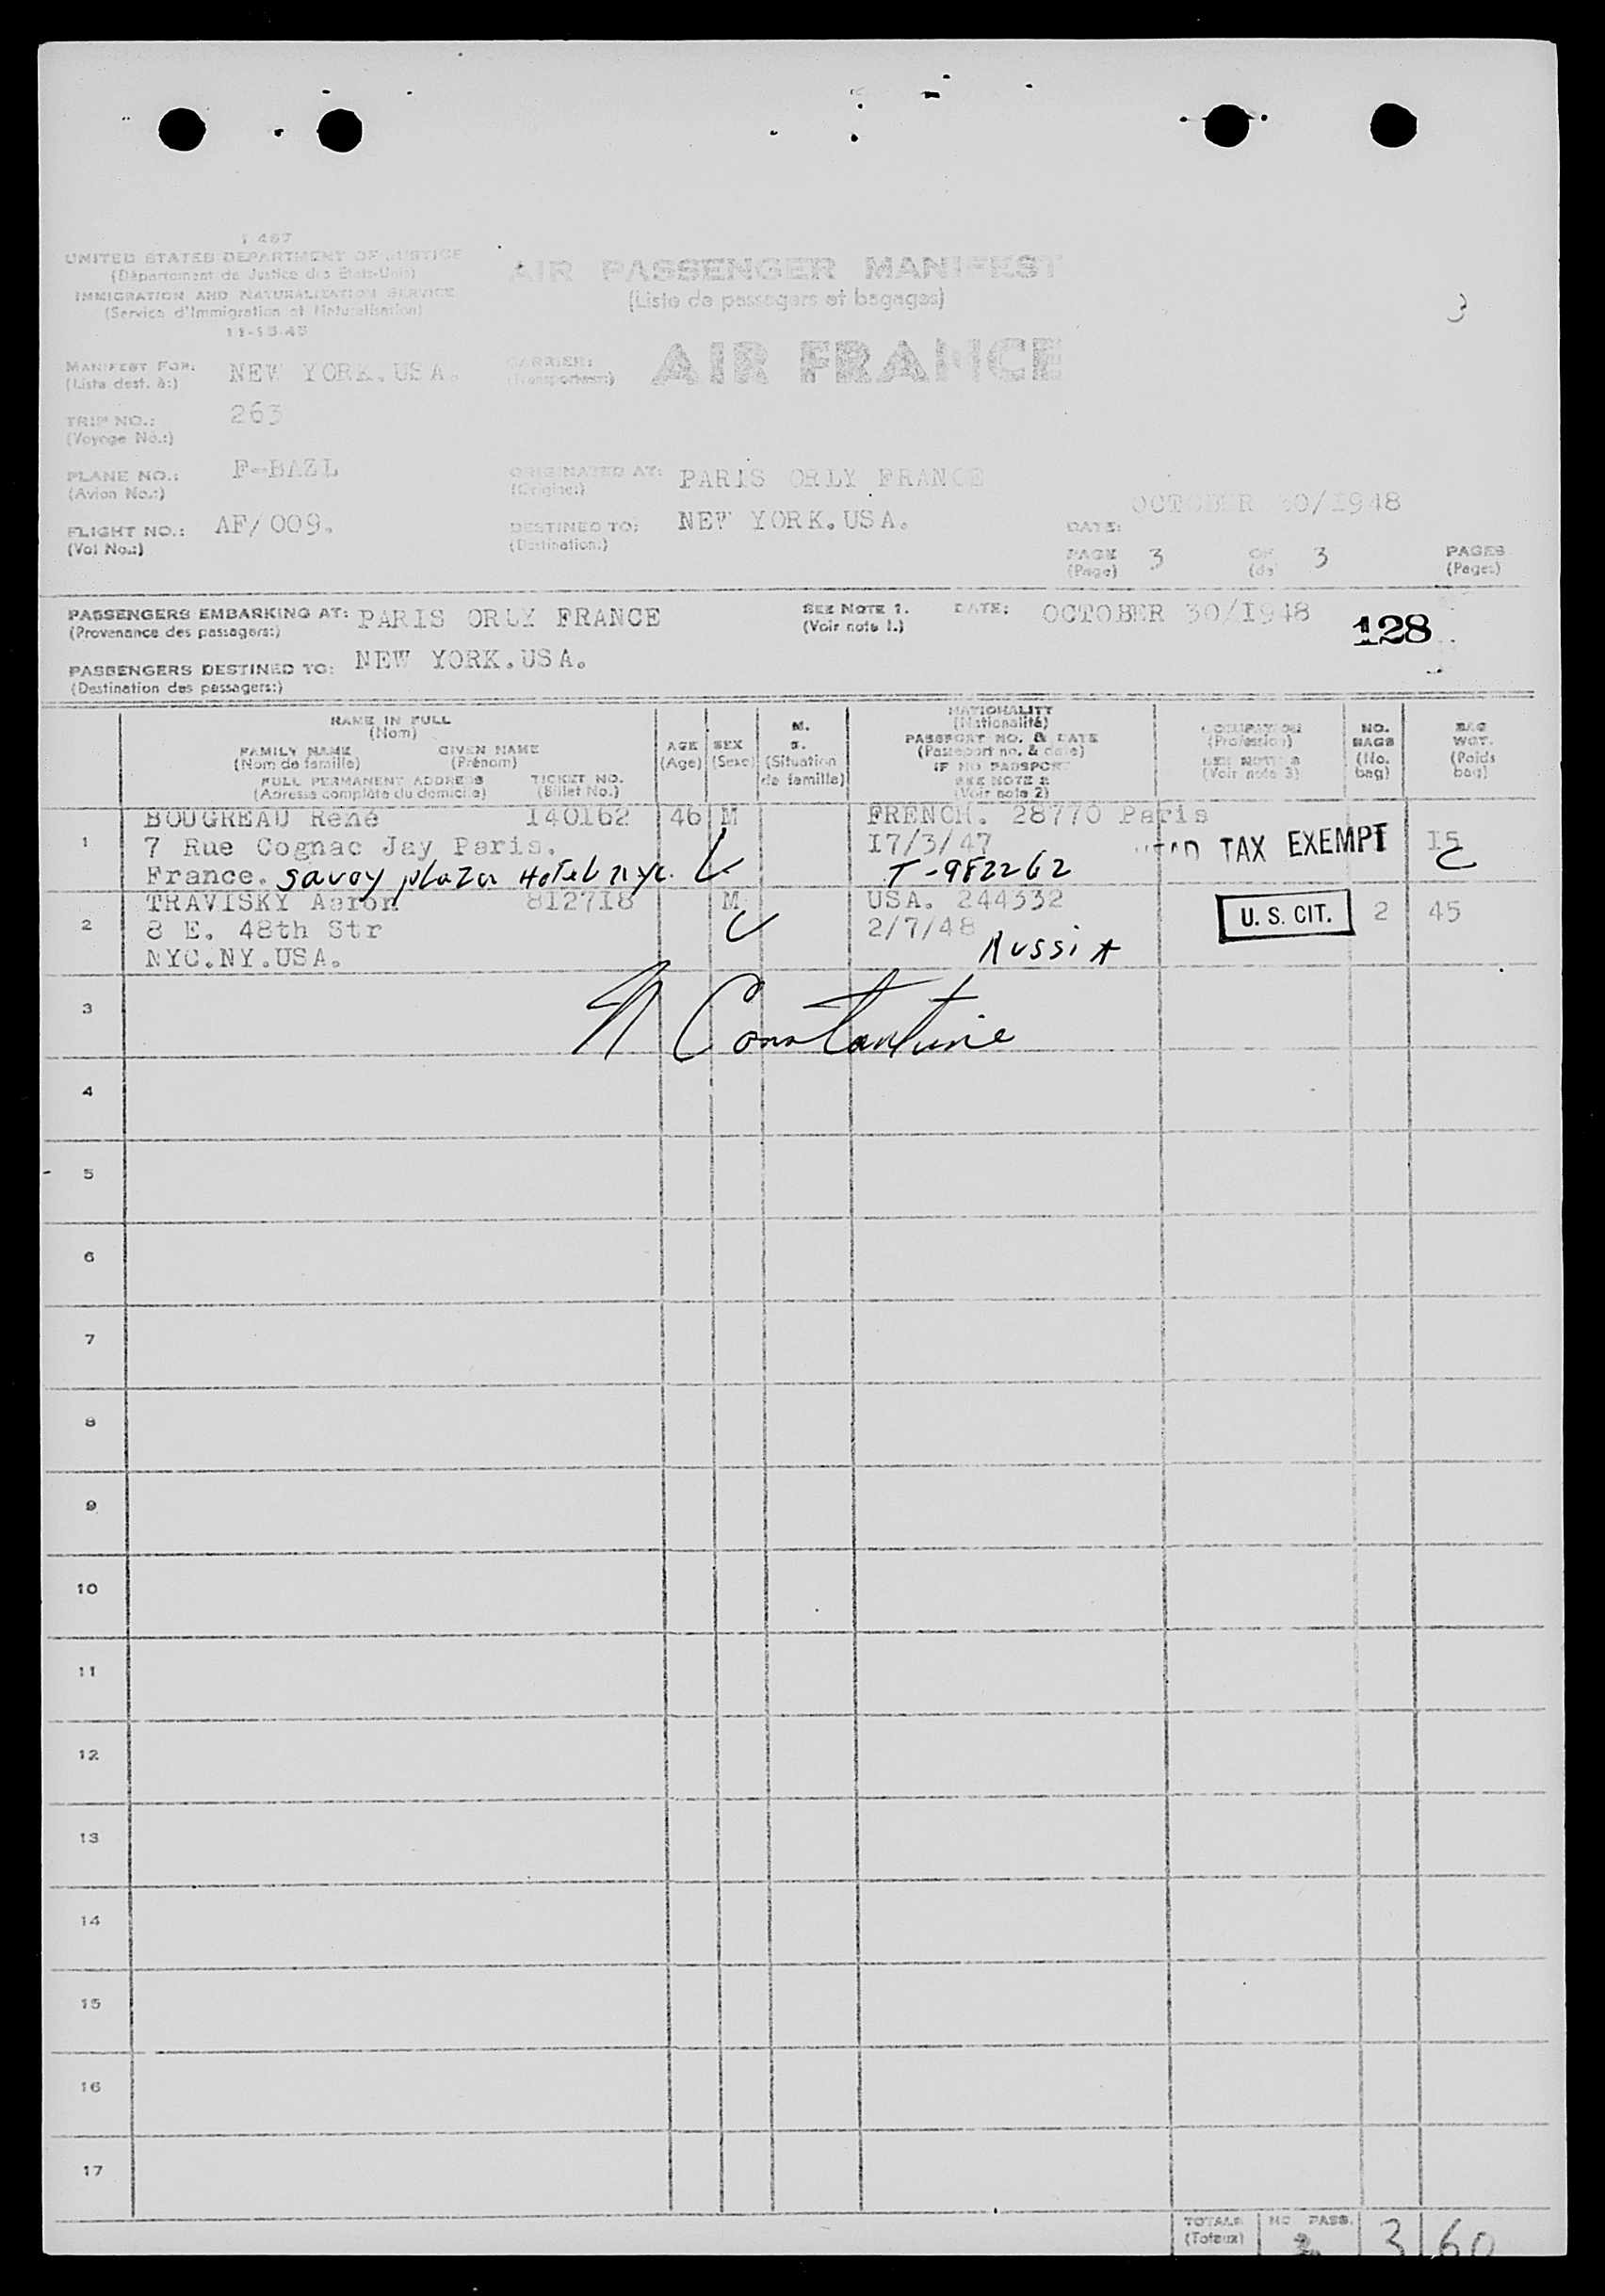 I 467
UNITED STATES DEPARTMENT OF JUSTICE
(Département de Justice des Etats-Unis)
IMMIGRATION AND NATURALIZATION SERVICE
(Service d'Immigration et Naturalisation)
11-15-45
AIR PASSENGER MANIFEST
(Liste de passagers et bagages)
3
MANIFEST FOR: NEW YORK.USA.
(Liste dest. à:)
CARRIER: AIR FRANCE
(Transporteur:)
TRIP NO.: 263
(Voyage No.:)
PLANE NO.: F-BAZL
(Avion No.:)
ORIGINATED AT: PARIS ORLY FRANCE
(Origine:)
FLIGHT NO.: AF/009.
(Vol No.:)
DESTINED TO: NEW YORK.USA.
(Destination:)
DATE: OCTOBER 30/I948
PAGE 3 OF 3 PAGES
(Page) (de) (Pages)
PASSENGERS EMBARKING AT: PARIS ORLY FRANCE SEE NOTE 1. DATE: OCTOBER 30/I948
(Provenance des passagers:) (Voir note 1.)
128
PASSENGERS DESTINED TO: NEW YORK.USA.
(Destination des passagers:)
NAME IN FULL
(Nom)
FAMILY NAME GIVEN NAME
(Nom de famille) (Prénom)
FULL PERMANENT ADDRESS TICKET NO.
(Adresse complète du domicile) (Billet No.)
AGE
(Age)
SEX
(Sexe)
M.
S.
(Situation
de famille)
NATIONALITY
(Nationalité)
PASSPORT NO. & DATE
(Passeport no. & date)
IF NO PASSPORT
SEE NOTE 2
(Voir note 2)
OCCUPATION
(Profession)
SEE NOTE 3
(Voir note 3)
NO.
BAGS
(No.
bag)
BAG
WGT.
(Poids
bag)
1
BOUGREAU René I40I62 46 M FRENCH. 28770 Paris
7 Rue Cognac Jay Paris. I7/3/47 TAX EXEMPT I5
France. Savoy plaza Hotel nyc. T-982262
2
TRAVISKY Aaron 8I27I8 M USA. 244332 U. S. CIT. 2 45
8 E. 48th Str 2/7/48
NYC.NY.USA. Russia
N Constantine
3
4
5
6
7
8
9
10
11
12
13
14
15
16
17
TOTALS NO PASS. 3 60
(Totaux) 2